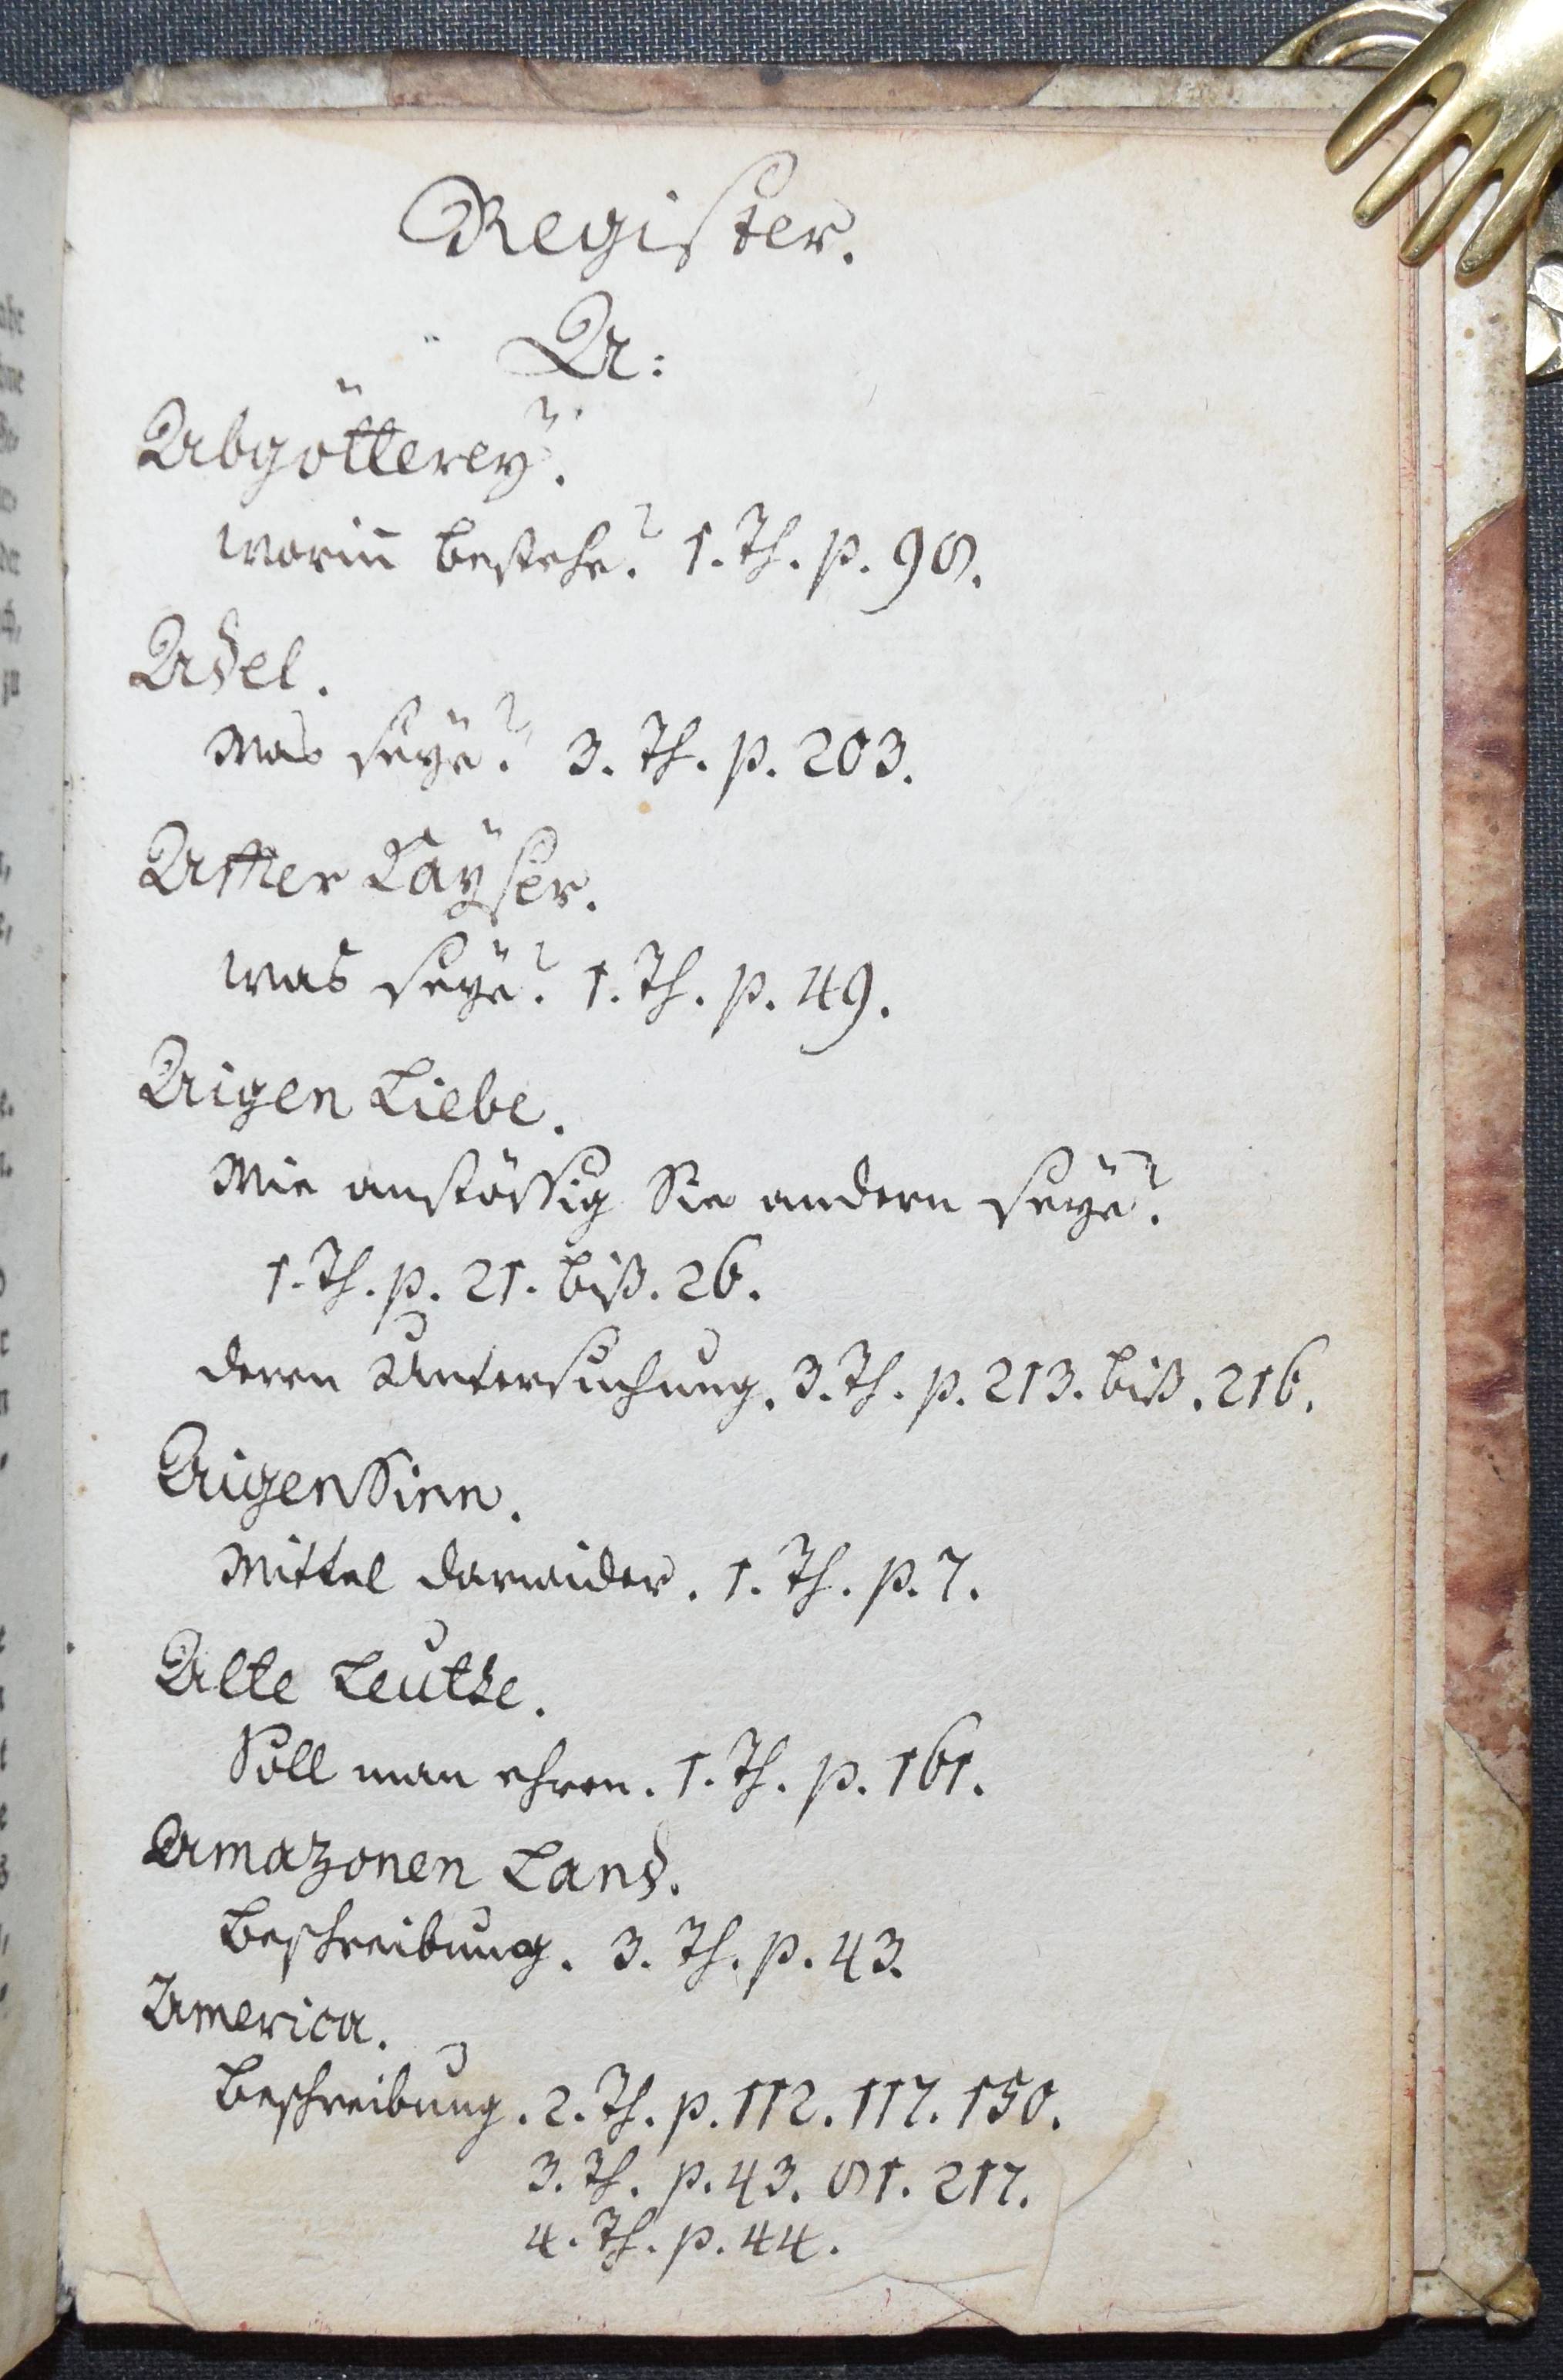 Register.
A:
Abgötterey.
worin̄ bestehe? 1. Th. p. 98.
Adel.
Was seÿe? 3. Th. p. 203.
Affter Kaÿser.
was seÿe? 1. Th. p. 49.
Aigen Liebe.
Wie anstössig Sie andern seÿe?
1. Th. p. 21. biß. 26.
deren Untersuchung. 3. Th. p. 213. biß. 216.
AigenSinn.
Mittel darwider. 1. Th. p. 7.
Alte Leuthe.
Soll man ehren. 1. Th. p. 161.
Amazonen Land.
Beschreibung. 3. Th. p. 43.
America.
Beschreibung. 2. Th. p. 112. 117. 150.
3. Th. p. 43. 81. 217.
4. Th. p. 44.